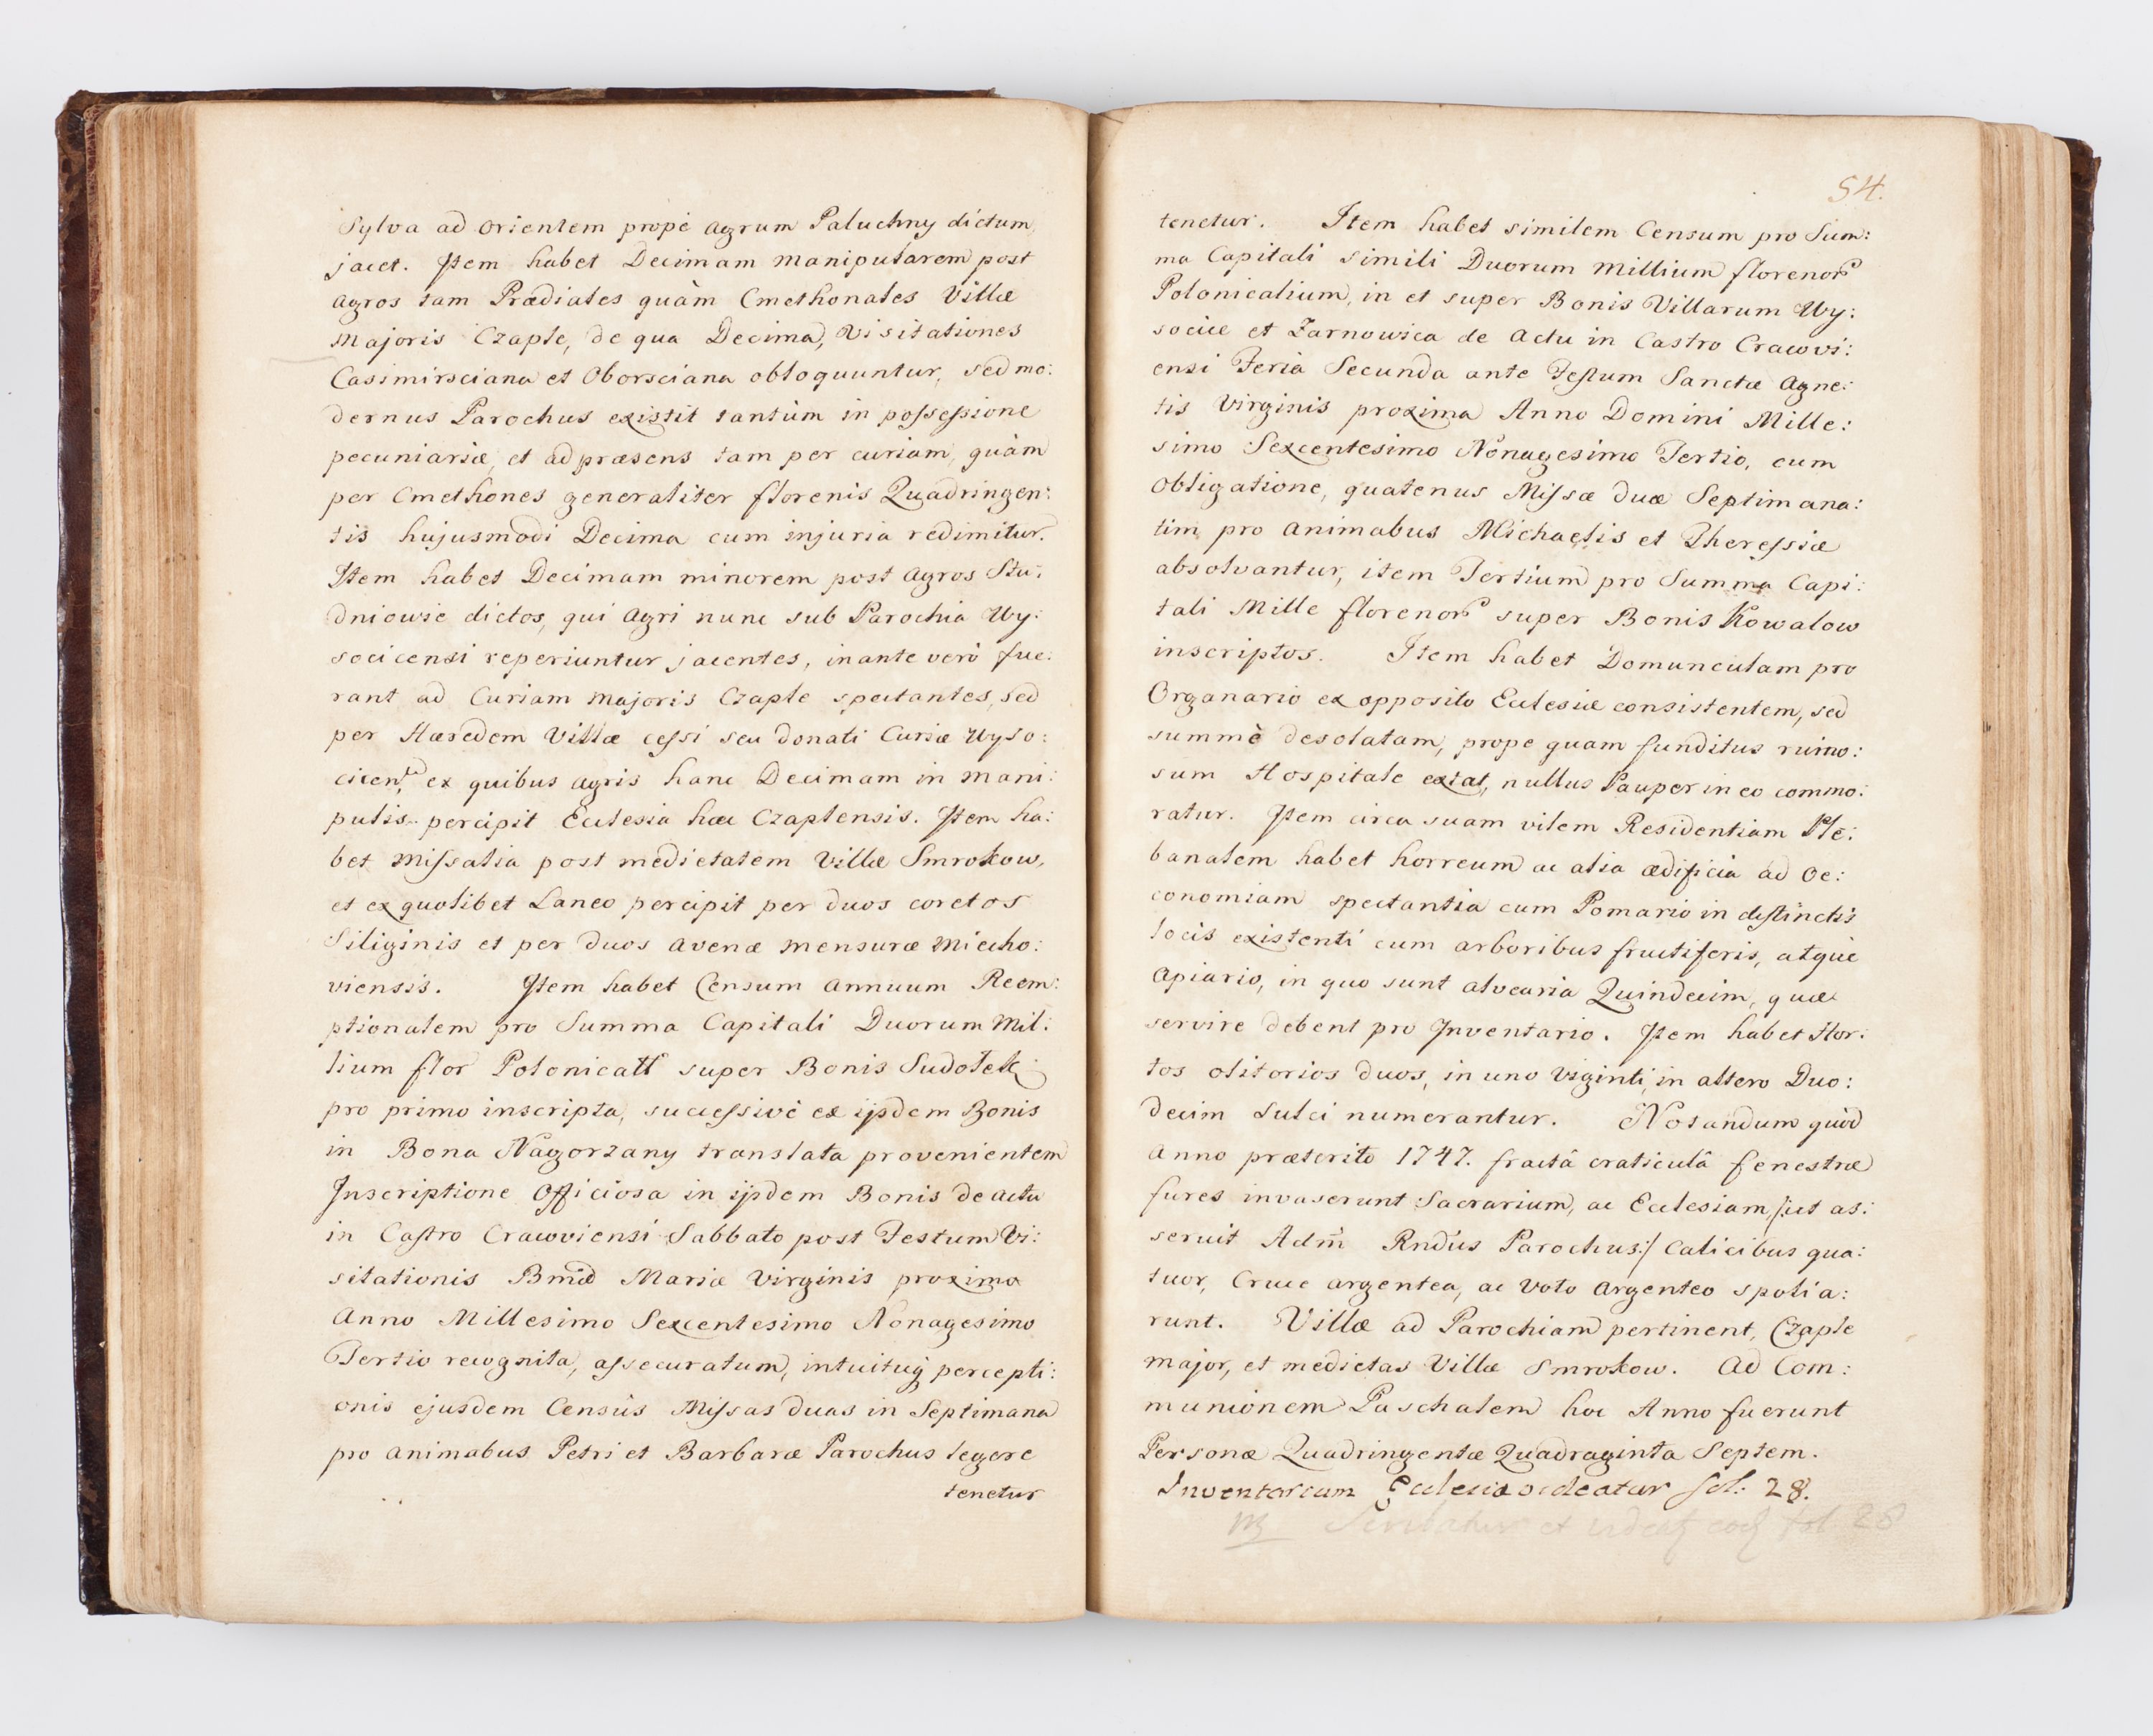 Sylva ad Orientem propè Agrum Paluchny dictum,
jacet. Item habet Decimam manipularem post
Agros tam Prædiales quàm Cmethonales Villæ
Majoris Czaple, de qua Decima, Visitationes
Casimirsciana et Oborsciana obloquuntur, sed mo:
dernus Parochus existit tantùm in possessione
pecuniariæ, et ad præsens tam per curiam, quàm
per Cmethones generaliter florenis Quadringen:
tis hujusmodi Decima cum injuria redimitur.
Item habet Decimam minorem post Agros Stu:
dniowie dictos, qui Agri nunc sub Parochia Wy:
socicensi reperiuntur jacentes, inante verò fue:
rant ad Curiam Majoris Czaple spectantes, sed
per Hæredem Villæ cessi seu donati Curiæ Wyso:
cicen, ex quibus Agris hanc Decimam in mani:
pulis percipit Ecclesia hæc Czaplensis. Item ha:
bet Missalia post medietatem Villæ Smrokow,
et ex quolibet Laneo percipit per duos coretos
Siliginis et per duos Avenæ mensuræ Miecho:
viensis. Item habet Censum Annuum Reem:
ptionalem pro Summa Capitali Duorum Mil:
lium flor Polonicall super Bonis Sudołek
pro primo inscripta, successivè ex ijsdem Bonis
in Bona Nagorzany translata provenientem
Inscriptione Officiosa in ijsdem Bonis de actu
in Castro Cracoviensi Sabbato post Festum Vi:
sitationis Bmæ Mariæ Virginis proximo
Anno Millesimo Sexcentesimo Nonagesimo
Tertio recognita, assecuratum, intuituq; percepti:
onis ejusdem Censûs Missas duas in Septimana
pro animabus Petri et Barbaræ Parochus legere
tenetur
54.
tenetur. Item habet similem Censum pro Sum:
ma Capitali simili Duorum Millium florenor
Polonicalium, in et super Bonis Villarum Wy:
socice et Zarnowica de Actu in Castro Cracovi:
ensi Feria Secunda ante Festum Sanctæ Agne:
tis Virginis proxima Anno Domini Mille:
simo Sexcentesimo Nonagesimo Tertio, cum
Obligatione, quatenus Missæ duæ Septimana:
tim pro Animabus Michaelis et Theressiæ
absolvantur, item Tertium pro Summa Capi:
tali Mille florenor super Bonis Kowalow
inscriptos. Item habet Domunculam pro
Organario ex opposito Ecclesiæ consistentem, sed
summè desolatam, prope quam funditus ruino:
sum Hospitale extat, nullus Pauper in eo commo:
ratur. Item circa suam vilem Residentiam Ple:
banalem habet horreum ac alia ædificia ad Oe:
conomiam spectantia cum Pomario in distinctis
locis existenti cum arboribus fructiferis, atque
Apiario, in quo sunt alvearia Quindecim, quæ
servire debent pro Inventario. Item habet Hor:
tos olitorios duos, in uno Viginti, in altero Duo:
decim Sulci numerantur. Notandum quod
Anno præterito 1747. fractâ craticulâ fenestræ
fures invaserunt Sacrarium, ac Ecclesiam, /:ut as:
seruit Adm Rndus Parochus:/ Calicibus qua:
tuor, Cruce Argentea, ac Voto Argenteo spolia:
runt. Villæ ad Parochiam pertinent, Czaple
Major, et medietas Villæ Smrokow. Ad Com:
munionem Paschalem hoc Anno fuerunt
Personæ Quadringentæ Quadraginta Septem.
Inventarium Ecclesiæ videatur fol: 28.
fol 28